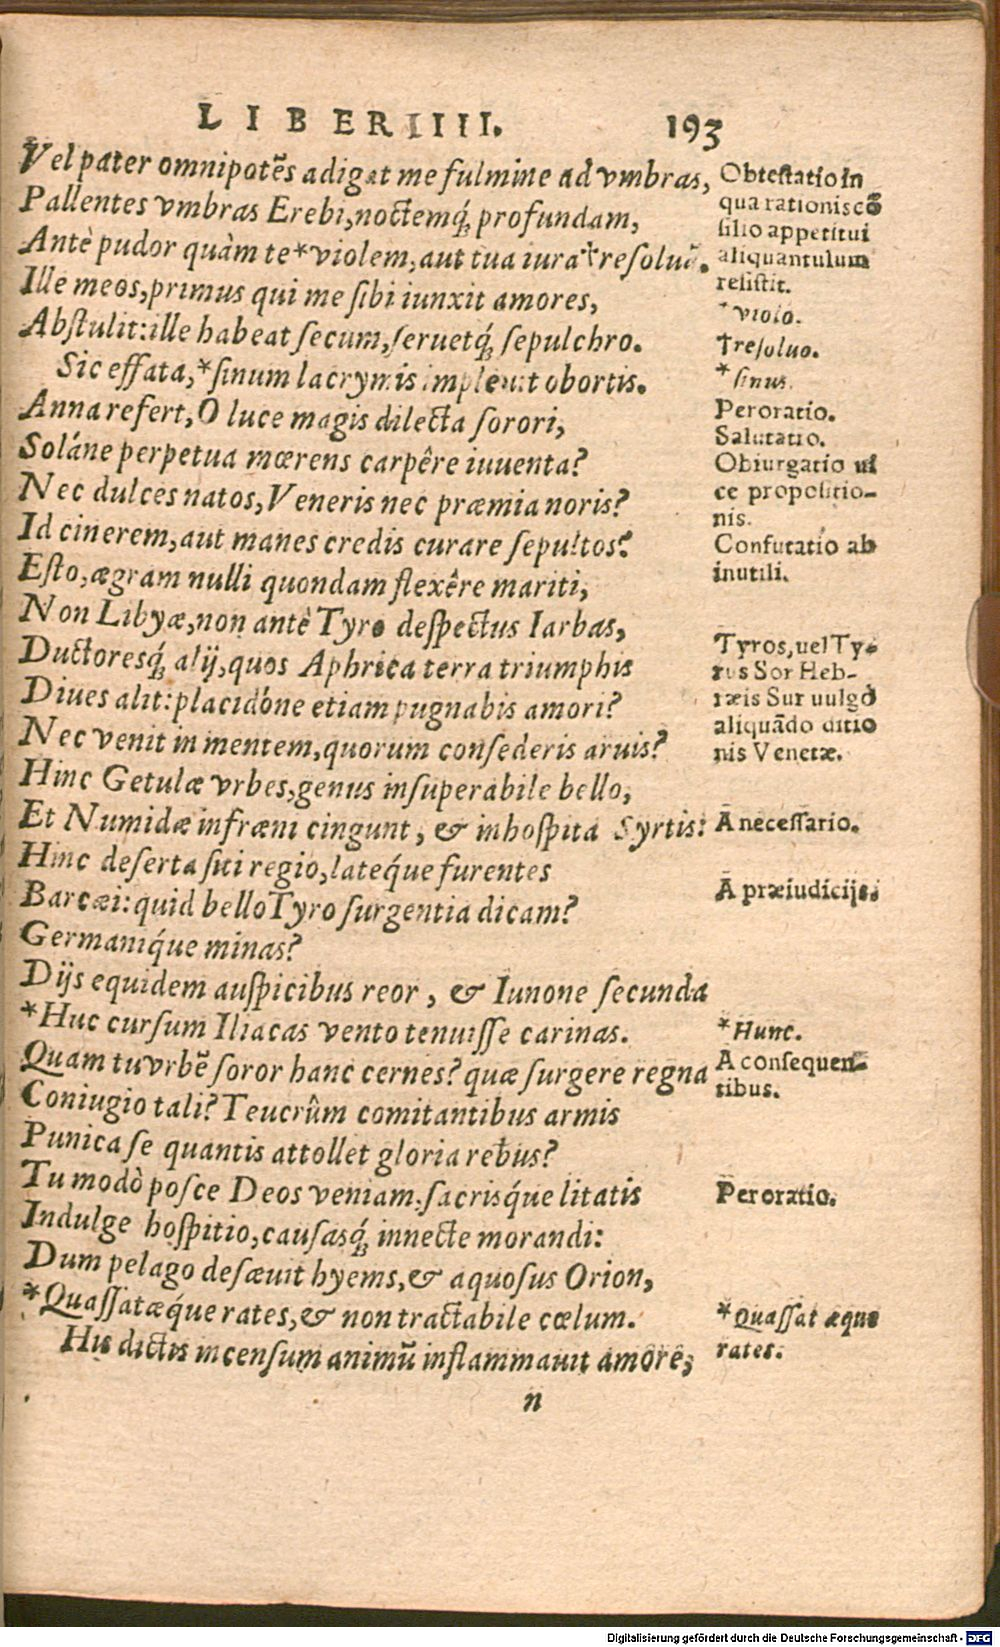 LIBER IIII. 193
Vel pater omnipotēs adigat me fulmine ad vmbras,
Pallentes vmbras Erebi, noctemq́; profundam,
Antè pudor quàm te *violem, aut tua iura †resoluā.
Ille meos, primus qui me sibi iunxit amores,
Abstulit: ille habeat secum, seruetq́; sepulchro.
Sic effata, *sinum lacrymis impleuit obortis.
Anna refert, O luce magis dilecta sorori,
Soláne perpetua mœrens carpêre iuuenta?
Nec dulces natos, Veneris nec præmia noris?
Id cinerem, aut manes credis curare sepultos?
Esto, ægram nulli quondam flexêre mariti,
Non Libyæ, non antè Tyro despectus Iarbas,
Ductoresq́; alij, quos Aphrica terra triumphis
Diues alit: placidóne etiam pugnabis amori?
Nec venit in mentem, quorum consederis aruis?
Hinc Getulæ vrbes, genus insuperabile bello,
Et Numidæ infræni cingunt, & inhospita Syrtis:
Hinc deserta siti regio, latéque furentes
Barcæi: quid bello Tyro surgentia dicam?
Germaniq́ue minas?
Dijs equidem auspicibus reor, & Iunone secunda
*Huc cursum Iliacas vento tenuisse carinas.
Quam tu vrbē soror hanc cernes? quæ surgere regna
Coniugio tali? Teucrûm comitantibus armis
Punica se quantis attollet gloria rebus?
Tu modò posce Deos veniam, sacrisq́ue litatis
Indulge hospitio, causasq́; innecte morandi:
Dum pelago desæuit hyems, & aquosus Orion,
*Quassatæq́ue rates, & non tractabile cœlum.
His dictis incensum animū inflammauit amore,
n
Obtestatio in
qua rationis cō
silio appetitui
aliquantulum
resistit.
*violo.
†resoluo.
*sinus.
Peroratio.
Salutatio.
Obiurgatio ui
ce propositio-
nis.
Confutatio ab
inutili.
Tyros, uel Ty-
rus Sor Heb-
ræis Sur uulgò
aliquādo ditio
nis Venetæ.
A necessario.
A præiudicijs.
*Hunc.
A consequen-
tibus.
Peroratio.
*Quassat æque
rates.
Digitalisierung gefördert durch die Deutsche Forschungsgemeinschaft - DFG